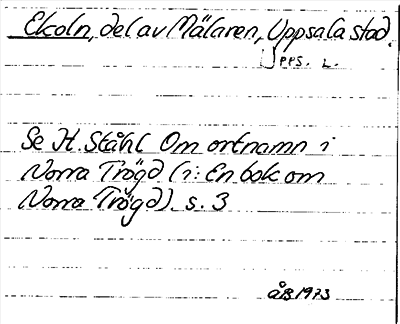 Ekoln, del av Mälaren, Uppsala stad.
Upps. L.
Se H. Ståhl Om ortnamn i
Norra Trögd (i: En bok om
Norra Trögd). s. 3
ÅB 1973